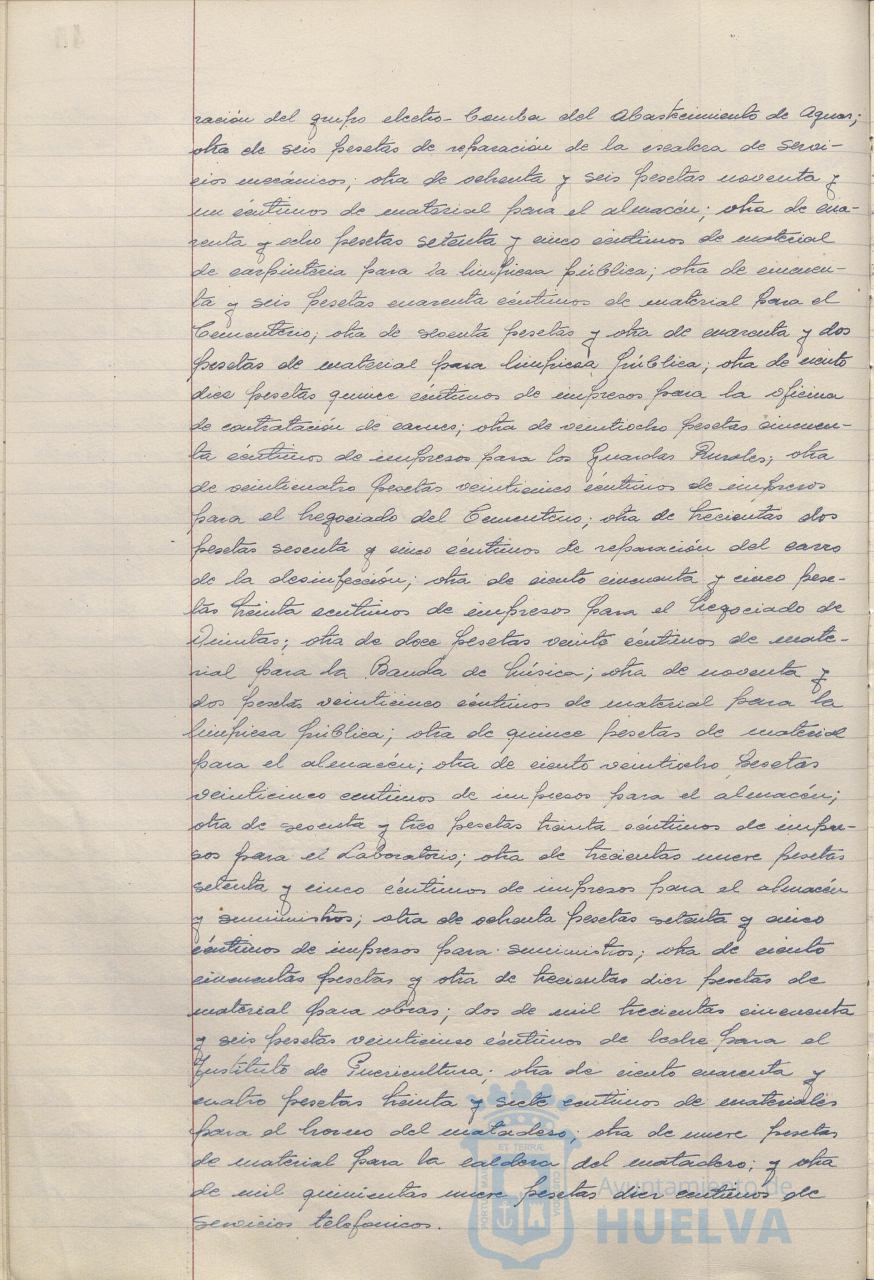 ración del grupo electro-bomba del Abastecimiento de Aguas;
otra de seis pesetas de reparación de la escalera de servi-
cios mecánicos; otra de ochenta y seis pesetas noventa y
un céntimos de material para el almacén; otra de cua-
renta y ocho pesetas setenta y cinco céntimos de material
de carpintería para la limpiesa pública; otra de cincuen-
ta y seis pesetas cuarenta céntimos de material para el
Cementerio; otra de sesenta pesetas y otra de cuarenta y dos
pesetas de material para limpiesa pública; otra de ciento
dies pesetas quince céntimos de impresos para la oficina
de contratación de carnes; otra de veintiocho pesetas cincuen-
ta céntimos de impresos para los Guardas Rurales; otra
de veinticuatro pesetas veinticinco céntimos de impresos
para el Negociado del Cementerio; otra de trecientas dos
pesetas sesenta y cinco céntimos de reparación del carro
de la desinfección; otra de ciento cincuenta y cinco pese-
tas treinta centimos de impresos para el Negociado de
Quintas; otra de doce pesetas veinte céntimos de mate-
rial para la Banda de Música; otra de noventa y
dos pesetas veinticinco céntimos de material para la
limpiesa pública; otra de quince pesetas de material
para el almacén; otra de ciento veintiocho pesetas
veinticinco centimos de impresos para el almacén;
otra de sesenta y tres pesetas treinta céntimos de impre-
sos para el Laboratorio; otra de trecientas nueve pesetas
setenta y cinco céntimos de impresos para el almacén
y suministros; otra de ochenta pesetas setenta y cinco
céntimos de impresos para suministros; otra de ciento
cincuentas pesetas y otra de trecientas diez pesetas de
material para obras; dos de mil trecientas cincuenta
y seis pesetas veinticinco céntimos de leche para el
Instituto de Puericultura; otra de ciento cuarenta y
cuatro pesetas treinta y siete centimos de materiales
para el horno del matadero; otra de nueve pesetas
de material para la caldera del matadero; y otra
de mil quinientas nueve pesetas diez centimos de
servicios telefonicos.
Ayuntamiento de
HUELVA